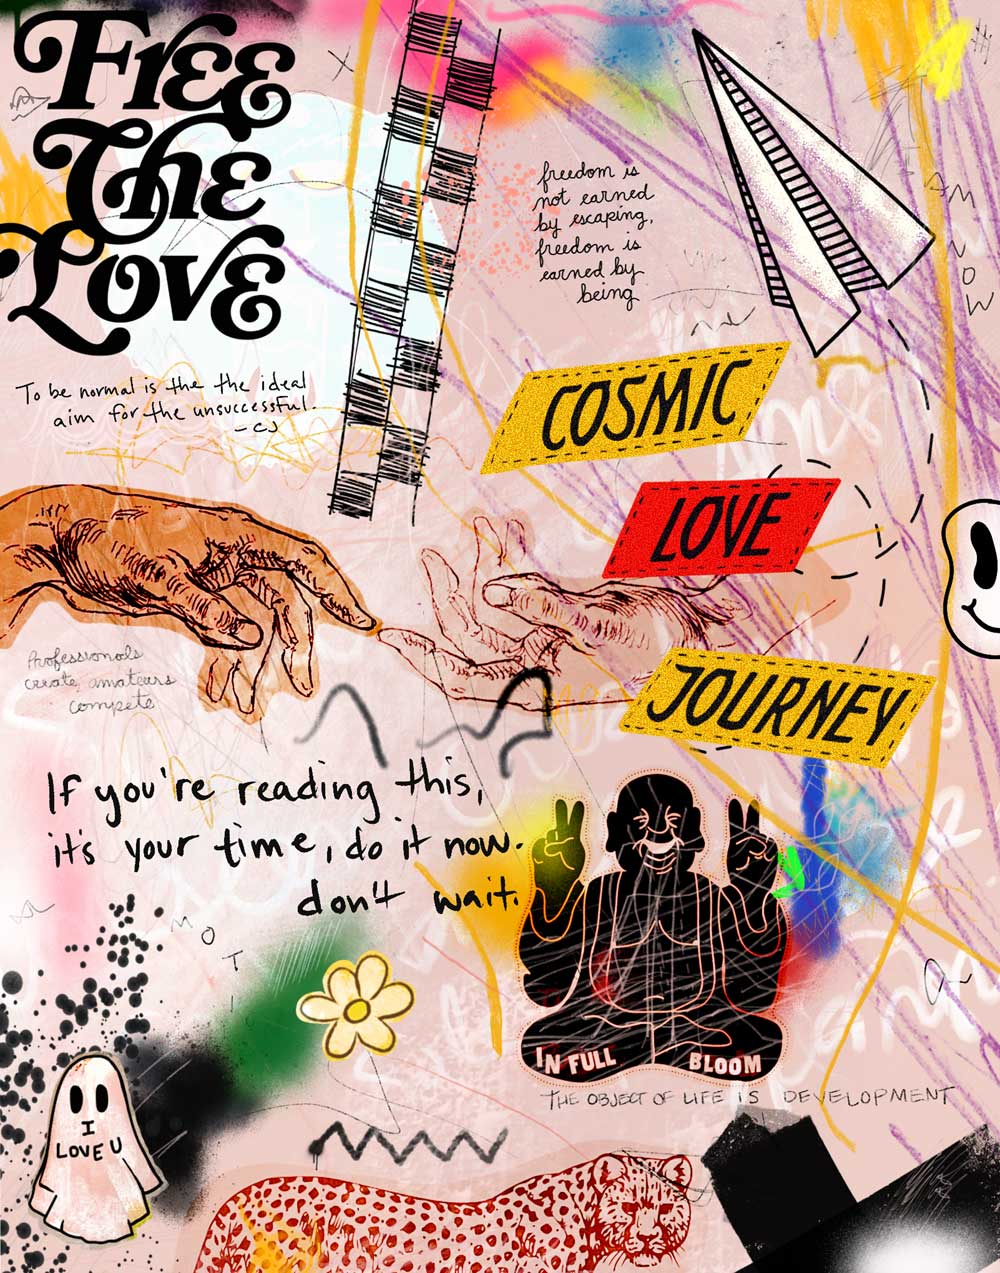 Free
The
Love
freedom is
not earned
by escaping,
freedom is
earned by
being
To be normal is the the ideal
aim for the unsuccessful.
- CJ
COSMIC
LOVE
JOURNEY
Professionals
create amateurs
compete
If you're reading this,
it's your time, do it now.
don't wait.
IN FULL BLOOM
THE OBJECT OF LIFE IS DEVELOPMENT
I
LOVE U